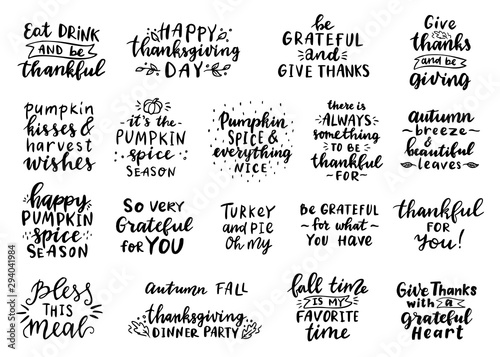 Eat DRINK
AND be
thankful
HAPPY
thanksgiving
DAY
be
GRATEFUL
and
GIVE THANKS
Give
thanks
and be
giving
pumpkin
kisses &
harvest
wishes
it's the
PUMPKIN
spice
SEASON
Pumpkin
SPICE &
everything
NICE
there is
ALWAYS
something
TO BE
thankful
-FOR-
autumn
~breeze~
&
beautiful
leaves
happy
PUMPKIN
spice
SEASON
SO VERY
Grateful
for YOU
TURKEY
and PiE
Oh My
Be GRATEFUL
~for what~
YOU HAVE
thankful
FOR
You!
Bless
THIS
Meal
Autumn FALL
thanksgiving
DINNER PARTY
fall time
IS MY
FAVORITE
time
Give Thanks
with a
grateful
Heart
Adobe Stock | #294041984